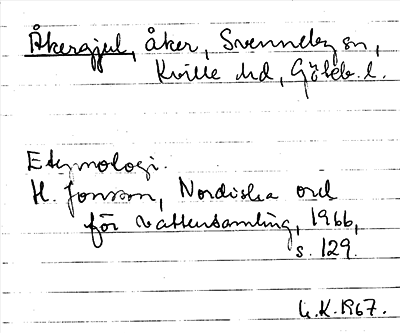 Åkergjul, åker, Svenneby sn,
Kville hd, Göteb. l.
Etymologi.
H. Jonsson, Nordiska ord
för vattensamling, 1966,
s. 129.
G.K. 1967.